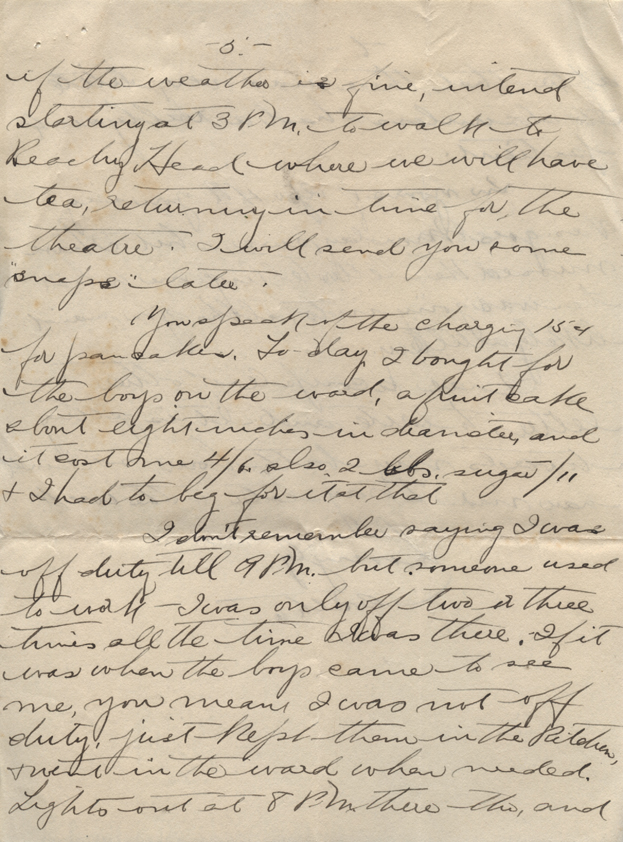 -5-
if the weather is fine, intend
starting at 3 P.M. to walk to
Beachy Head where we will have
tea, returning in time for, the
theatre. I will send you some
"snaps" later.
You speak of the charging 15¢
for pancakes. To-day I bought for
the boys on the ward, a fruit cake
about eight inches in diameter, and
it cost me 4/6. also 2 lbs. sugar /11
+ I had to beg for it at that
I don't remember saying I was
off duty till 9 P.M. but someone used
to work - I was only off two or three
times all the time I was there. If it
was when the boys came to see
me, you mean, I was not off
duty, just kept them in the kitchen,
+ went in the ward when needed.
Lights out at 8 P.M. there - tho, and